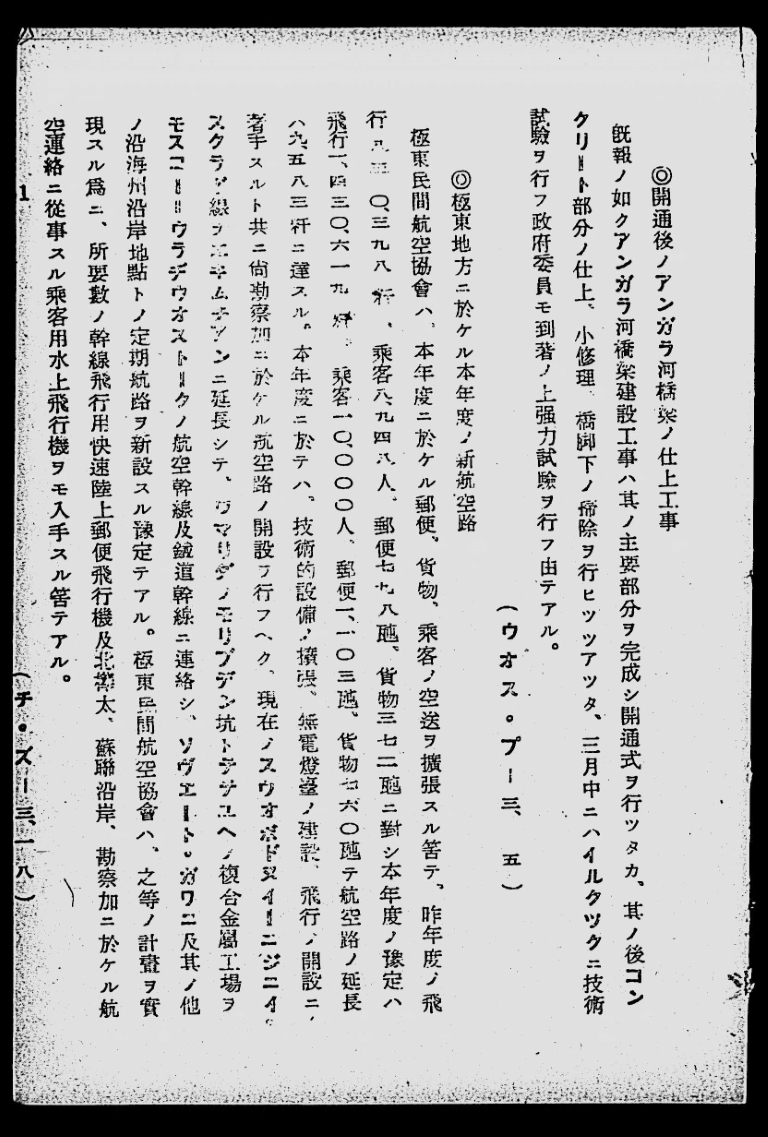 ◎開通後ノアンガラ河橋梁ノ仕上工事
既報ノ如クアンガラ河橋梁建設工事ハ其ノ主要部分ヲ完成シ開通式ヲ行ツタカ、其ノ後コン
クリート部分ノ仕上、小修理、橋脚下ノ掃除ヲ行ヒツツアツタ、三月中ニハイルクツクニ技術
試驗ヲ行フ政府委員モ到著ノ上强力試驗ヲ行フ由テアル。
(ウオス。プー三、五)
◎極東地方ニ於ケル本年度ノ新航空路
極東民間航空協會ハ、本年度ニ於ケル郵便、貨物、乘客ノ空送ヲ擴張スル筈テ、昨年度ノ飛
行 〇、三九八粁、乘客八、九四八人、郵便七九八瓲、貨物三七二瓲ニ對シ本年度ノ豫定ハ
飛行一、四三〇、六一九粁、乘客一〇、〇〇〇人、郵便一、一〇三瓲、貨物七六〇瓲テ航空路ノ延長
ハ九、五八三粁ニ達スル。本年度ニ於テハ、技術的設備ノ擴張、無電燈臺ノ建設、飛行ノ開設ニ
著手スルト共ニ尙勘察加ニ於ケル航空路ノ開設ヲ行フヘク、現在ノスウオボドヌイーニジニイ、
スクラド線ヲエキムチヤンニ延長シテ、ウマリタノモリブデン坑トテチユヘノ複合金屬工場ヲ
モスコーーウラヂウオストークノ航空幹線及鐵道幹線ニ連絡シ、ソヴエート。ガワニ及其ノ他
ノ沿海州沿岸地點トノ定期航路ヲ新設スル豫定テアル。極東民間航空協會ハ、之等ノ計畫ヲ實
現スル爲ニ、所要數ノ幹線飛行用快速陸上郵便飛行機及北樺太、蘇聯沿岸、勘察加ニ於ケル航
空連絡ニ從事スル乘客用水上飛行機ヲモ入手スル筈テアル。
(チ。ズー三、一八)
1